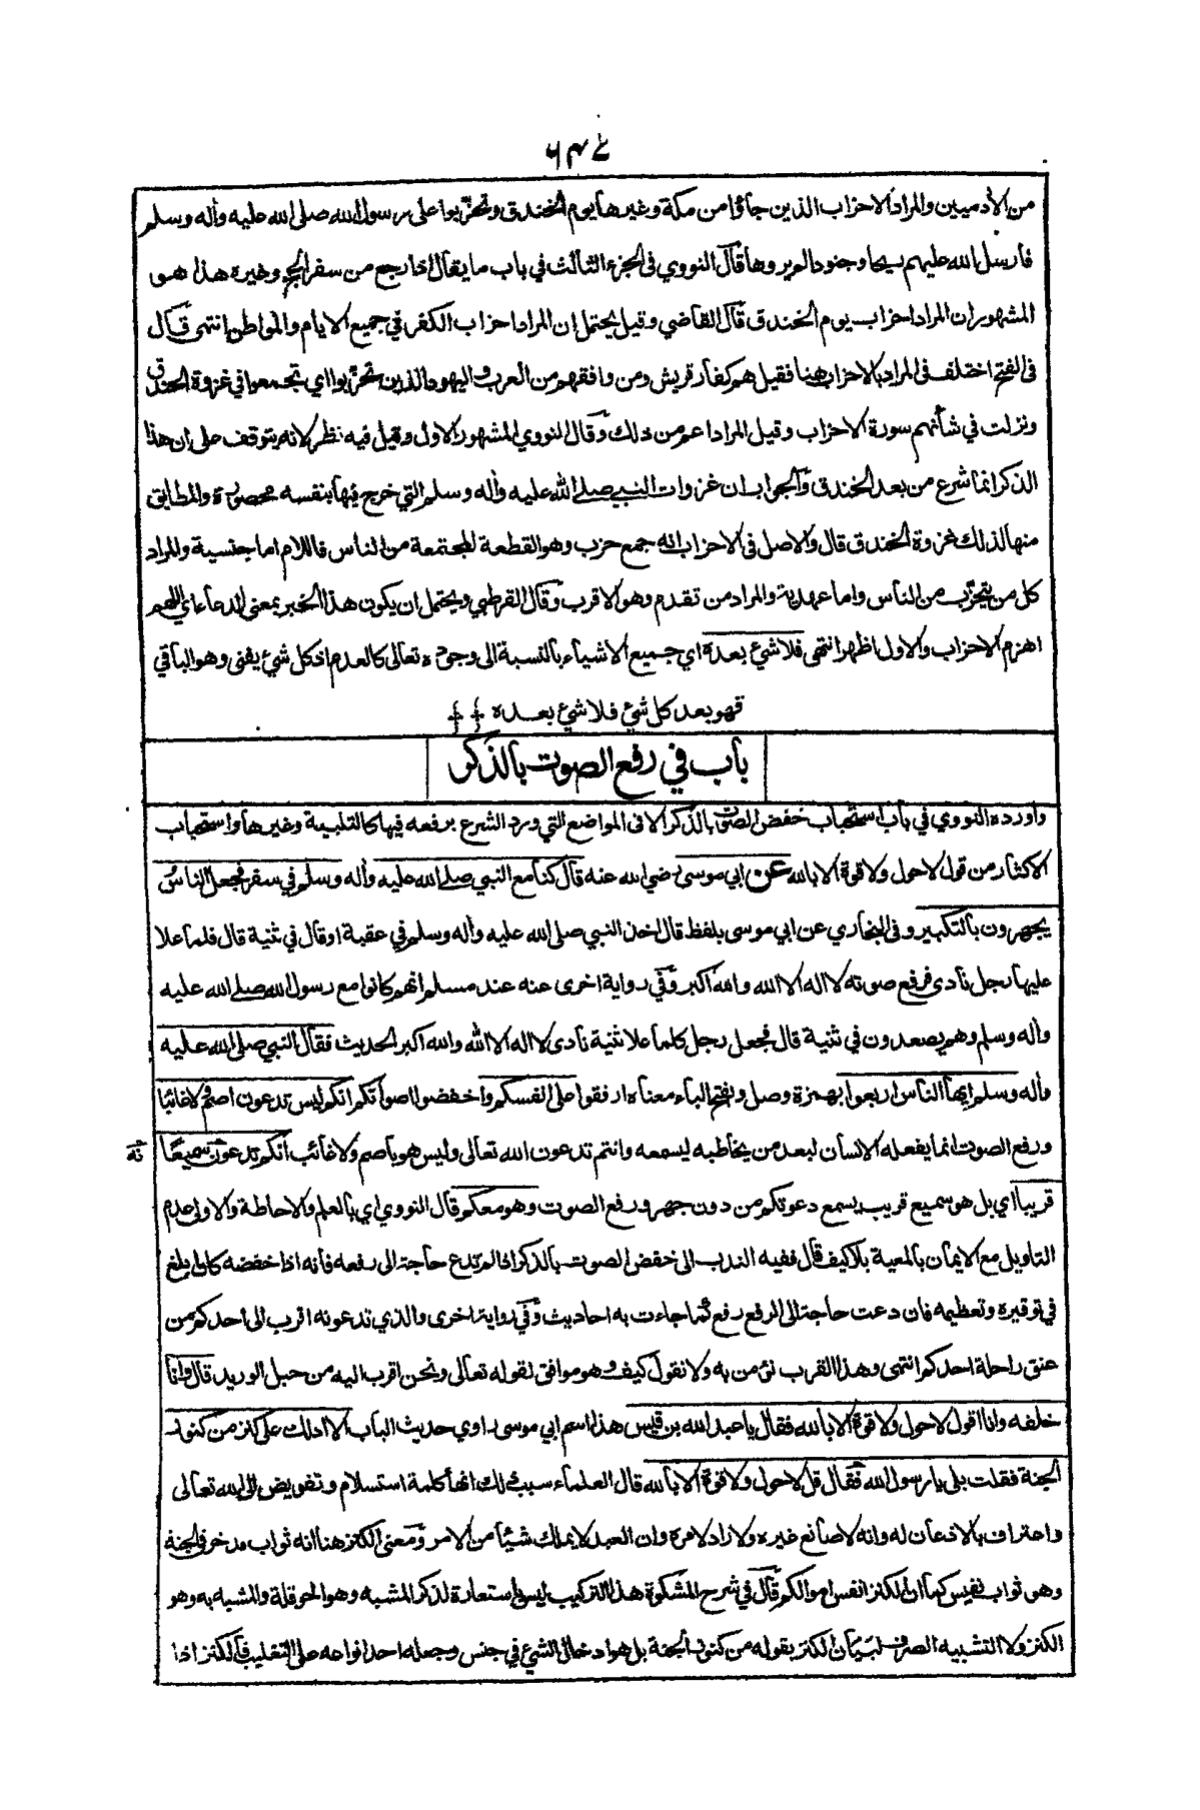 ٦٣٤
من الآدميين والمراد الاحزاب الذين جاؤا من مكة وغيرها يوم الخندق وتحزبوا على رسول الله صلى الله عليه وأله وسلم
فارسل الله عليهم ريحا وجنودا لم يروها قال النووي فى الجزء الثالث في باب ما يقال اذا رجع من سفر الحج وغيره هذا هو
المشهور ان المراد احزاب يوم الخندق قال القاضي وقيل يحتمل ان المراد احزاب الكفر في جميع الايام والمواطن انتهى قال
فى الفتح اختلف فى المراد بالاحزاب هنا فقيل هم كفار قريش ومن وافقهم من العرب واليهود الذين تحزبوا اي تجمعوا في غزوة الخندق
ونزلت في شأنهم سورة الاحزاب وقيل المراد اعم من ذلك وقال النووي المشهور الاول وقيل فيه نظر لانه يتوقف على ان هذا
الذكر انما شرع من بعد الخندق والجواب ان غزوات النبي صلى الله عليه وأله وسلم التي خرج فيها بنفسه محصورة والمطابق
منها لذلك غزوة الخندق قال والاصل فى الاحزاب انه جمع حزب وهو القطعة المجتمعة من الناس فاللام اما جنسية والمراد
كل من يتحزب من الناس واما عهدية والمراد من تقدم وهو الاقرب وقال القرطبي ويحتمل ان يكون هذا الخبر بمعنى الدعاء اي اللهم
اهزم الاحزاب والاول اظهر انتهى فلا شئ بعده اي جميع الاشياء بالنسبة الى وجوده تعالى كالعدم اذ كل شئ يفنى وهو الباقي
فهو بعد كل شئ فلا شئ بعده
باب في رفع الصوت بالذكر
واورده النووي في باب استحباب خفض الصوت بالذكر الا فى المواضع التي ورد الشرع برفعه فيها كالتلبية وغيرها واستحباب
الاكثار من قول لا حول ولا قوة الا بالله عن ابي موسى رضي الله عنه قال كنا مع النبي صلى الله عليه وأله وسلم في سفر فجعل الناس
يجهرون بالتكبير وفى البخاري عن ابي موسى بلفظ قال اخذ النبي صلى الله عليه وأله وسلم في عقبة او قال في ثنية قال فلما علا
عليها رجل نادى فرفع صوته لا اله الا الله والله اكبر وفي رواية اخرى عنه عند مسلم انهم كانوا مع رسول الله صلى الله عليه
وأله وسلم وهم يصعدون في ثنية قال فجعل رجل كلما علا ثنية نادى لا اله الا الله والله اكبر الحديث فقال النبي صلى الله عليه
وأله وسلم ايها الناس اربعوا بهمزة وصل وبفتح الباء معناه ارفقوا على انفسكم واخفضوا اصواتكم انكم ليس تدعون اصم ولا غائبا
ورفع الصوت انما يفعله الانسان لبعد من يخاطبه ليسمعه وانتم تدعون الله تعالى وليس هو باصم ولا غائب انكم تدعون سميعًا
قريبا اي بل هو سميع قريب يسمع دعوتكم من دون جهر ورفع الصوت وهو معكم قال النووي اي بالعلم والاحاطة والاولى عدم
التاويل مع الايمان بالمعية بلا كيف قال ففيه الندب الى خفض الصوت بالذكر اذا لم تدع حاجة الى رفعه فانه اذا خفضه كان ابلغ
في توقيره وتعظيمه فان دعت حاجة الى الرفع رفع كما جاءت به احاديث وفي رواية اخرى والذي تدعونه اقرب الى احدكم من
عنق راحلة احدكم انتهى وهذا القرب نؤمن به ولا نقول كيف وهو موافق لقوله تعالى ونحن اقرب اليه من حبل الوريد قال وانا
خلفه وانا اقول لا حول ولا قوة الا بالله فقال يا عبد الله بن قيس هذا اسم ابي موسى راوي حديث الباب الا ادلك على كنز من كنوز
الجنة فقلت بلى يا رسول الله فقال قل لا حول ولا قوة الا بالله قال العلماء سبب ذلك انها كلمة استسلام وتفويض الى الله تعالى
واعتراف بالاذعان له وانه لا صانع غيره ولا راد لامره وان العبد لا يملك شيئا من الامر ومعنى الكنز هنا انه ثواب مدخر فى الجنة
وهو ثواب نفيس كما ان الكنز انفس اموالكم قال في شرح المشكوة هذا التركيب ليس باستعارة لذكر المشبه وهو الحوقلة والمشبه به وهو
الكنز ولا التشبيه الصرف لبيان الكنز بقوله من كنوز الجنة بل هو ادخال الشئ في جنس وجعله احد انواعه على التغليب فالكنز اذا